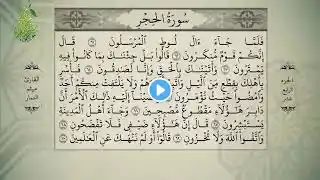 سُورَةُ الحِجْر
فَلَمَّا جَآءَ ءَالَ لُوطٍ ٱلْمُرْسَلُونَ ٦١ قَالَ
إِنَّكُمْ قَوْمٌ مُّنكَرُونَ ٦٢ قَالُوا۟ بَلْ جِئْنَٰكَ بِمَا كَانُوا۟ فِيهِ
يَمْتَرُونَ ٦٣ وَأَتَيْنَٰكَ بِٱلْحَقِّ وَإِنَّا لَصَٰدِقُونَ ٦٤ فَأَسْرِ
بِأَهْلِكَ بِقِطْعٍ مِّنَ ٱلَّيْلِ وَٱتَّبِعْ أَدْبَٰرَهُمْ وَلَا يَلْتَفِتْ مِنكُمْ أَحَدٌ
وَٱمْضُوا۟ حَيْثُ تُؤْمَرُونَ ٦٥ وَقَضَيْنَآ إِلَيْهِ ذَٰلِكَ ٱلْأَمْرَ أَنَّ
دَابِرَ هَٰٓؤُلَآءِ مَقْطُوعٌ مُّصْبِحِينَ ٦٦ وَجَآءَ أَهْلُ ٱلْمَدِينَةِ
يَسْتَبْشِرُونَ ٦٧ قَالَ إِنَّ هَٰٓؤُلَآءِ ضَيْفِى فَلَا تَفْضَحُونِ ٦٨
وَٱتَّقُوا۟ ٱللَّهَ وَلَا تُخْزُونِ ٦٩ قَالُوٓا۟ أَوَلَمْ نَنْهَكَ عَنِ ٱلْعَٰلَمِينَ ٧٠
الجزء
الرابع
عشر
القارئ